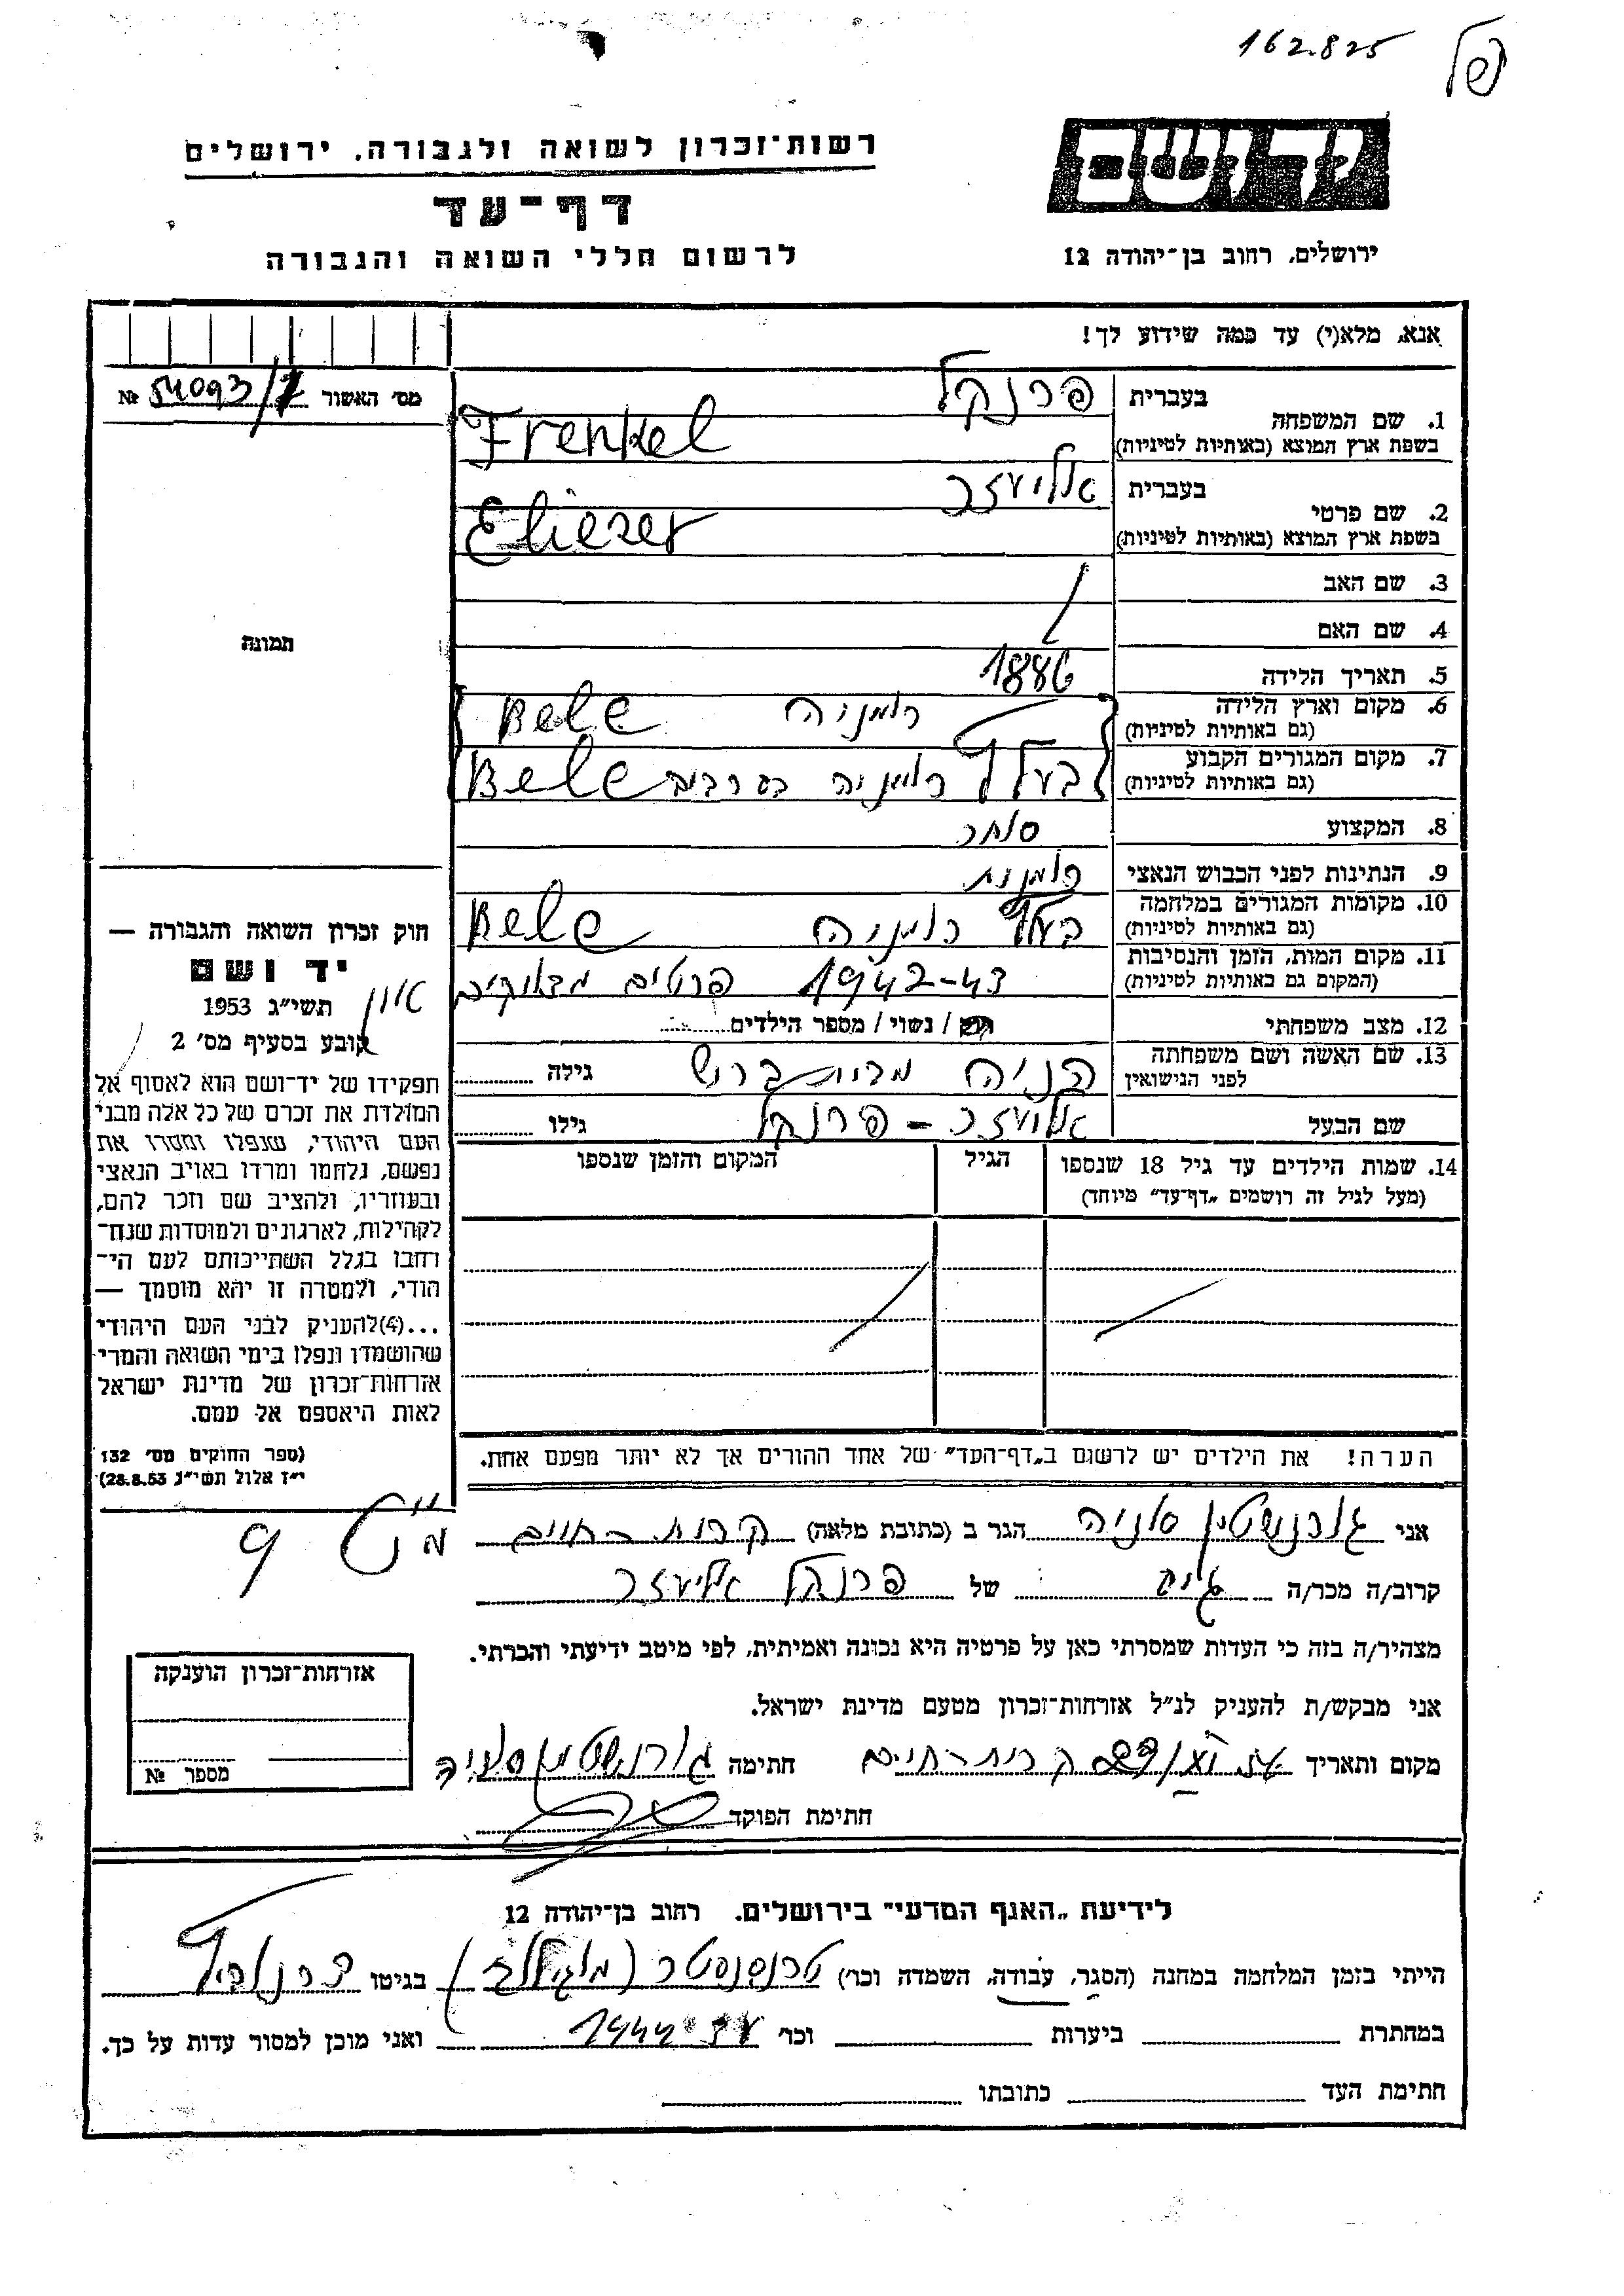 162.825
יד ושם
רשות־זכרון לשואה ולגבורה, ירושלים
דף־עד
לרשום חללי השואה והגבורה
ירושלים, רחוב בן־יהודה 12
אנא, מלא(י) עד כמה שידוע לך!
מס׳ האשור 54093/ №
1. שם המשפחה
בעברית פרנקל
בשפת ארץ המוצא (באותיות לטיניות) Frenkel
2. שם פרטי
בעברית אליעזר
בשפת ארץ המוצא (באותיות לטיניות) Eliezer
3. שם האב
4. שם האם
תמונה
5. תאריך הלידה 1886
6. מקום וארץ הלידה רומניה
(גם באותיות לטיניות)
7. מקום המגורים הקבוע רומניה
(גם באותיות לטיניות)
8. המקצוע סוחר
9. הנתינות לפני הכבוש הנאצי רומנית
10. מקומות המגורים במלחמה רומניה
(גם באותיות לטיניות)
11. מקום המות, הזמן והנסיבות 1942-43 פרטים מדויקים אין
(המקום גם באותיות לטיניות)
12. מצב משפחתי / נשוי / מספר הילדים
13. שם האשה ושם משפחתה מבית גילה
לפני הנישואין
שם הבעל אליעזר - פרנקל גילו
14. שמות הילדים עד גיל 18 שנספו הגיל המקום והזמן שנספו
(מעל לגיל זה רושמים „דף־עד״ מיוחד)
הערה! את הילדים יש לרשום ב„דף־העד״ של אחד ההורים אך לא יותר מפעם אחת.
חוק זכרון השואה והגבורה —
יד ושם
תשי״ג 1953
קובע בסעיף מס׳ 2
תפקידו של יד־ושם הוא לאסוף אל
המולדת את זכרם של כל אלה מבני
העם היהודי, שנפלו ומסרו את
נפשם, נלחמו ומרדו באויב הנאצי
ובעוזריו, ולהציב שם וזכר להם,
לקהילות, לארגונים ולמוסדות שנח־
רבו בגלל השתייכותם לעם הי־
הודי, ולמטרה זו יהא מוסמך —
...(4)להעניק לבני העם היהודי
שהושמדו ונפלו בימי השואה והמרי
אזרחות־זכרון של מדינת ישראל
לאות היאספם אל עמם.
(ספר החוקים מס׳ 132
י״ז אלול תשי״ג 28.8.53)
אני גורנשטין סוניה הגר ב (כתובת מלאה) קרית-חיים
קרוב/ה מכר/ה של פרנקל אליעזר
מצהיר/ה בזה כי העדות שמסרתי כאן על פרטיה היא נכונה ואמיתית, לפי מיטב ידיעתי והכרתי.
אני מבקש/ת להעניק לנ״ל אזרחות־זכרון מטעם מדינת ישראל.
מקום ותאריך קרית-חיים חתימה גורנשטין סוניה
חתימת הפוקד
אזרחות־זכרון הוענקה
מספר №
לידיעת „האגף המדעי״ בירושלים, רחוב בן־יהודה 12
הייתי בזמן המלחמה במחנה (הסגר, עבודה, השמדה וכו׳) טרנסנסטר בגיטו
במחתרת ביערות וכו׳ עד 1944 ואני מוכן למסור עדות על כך.
חתימת העד כתובתו